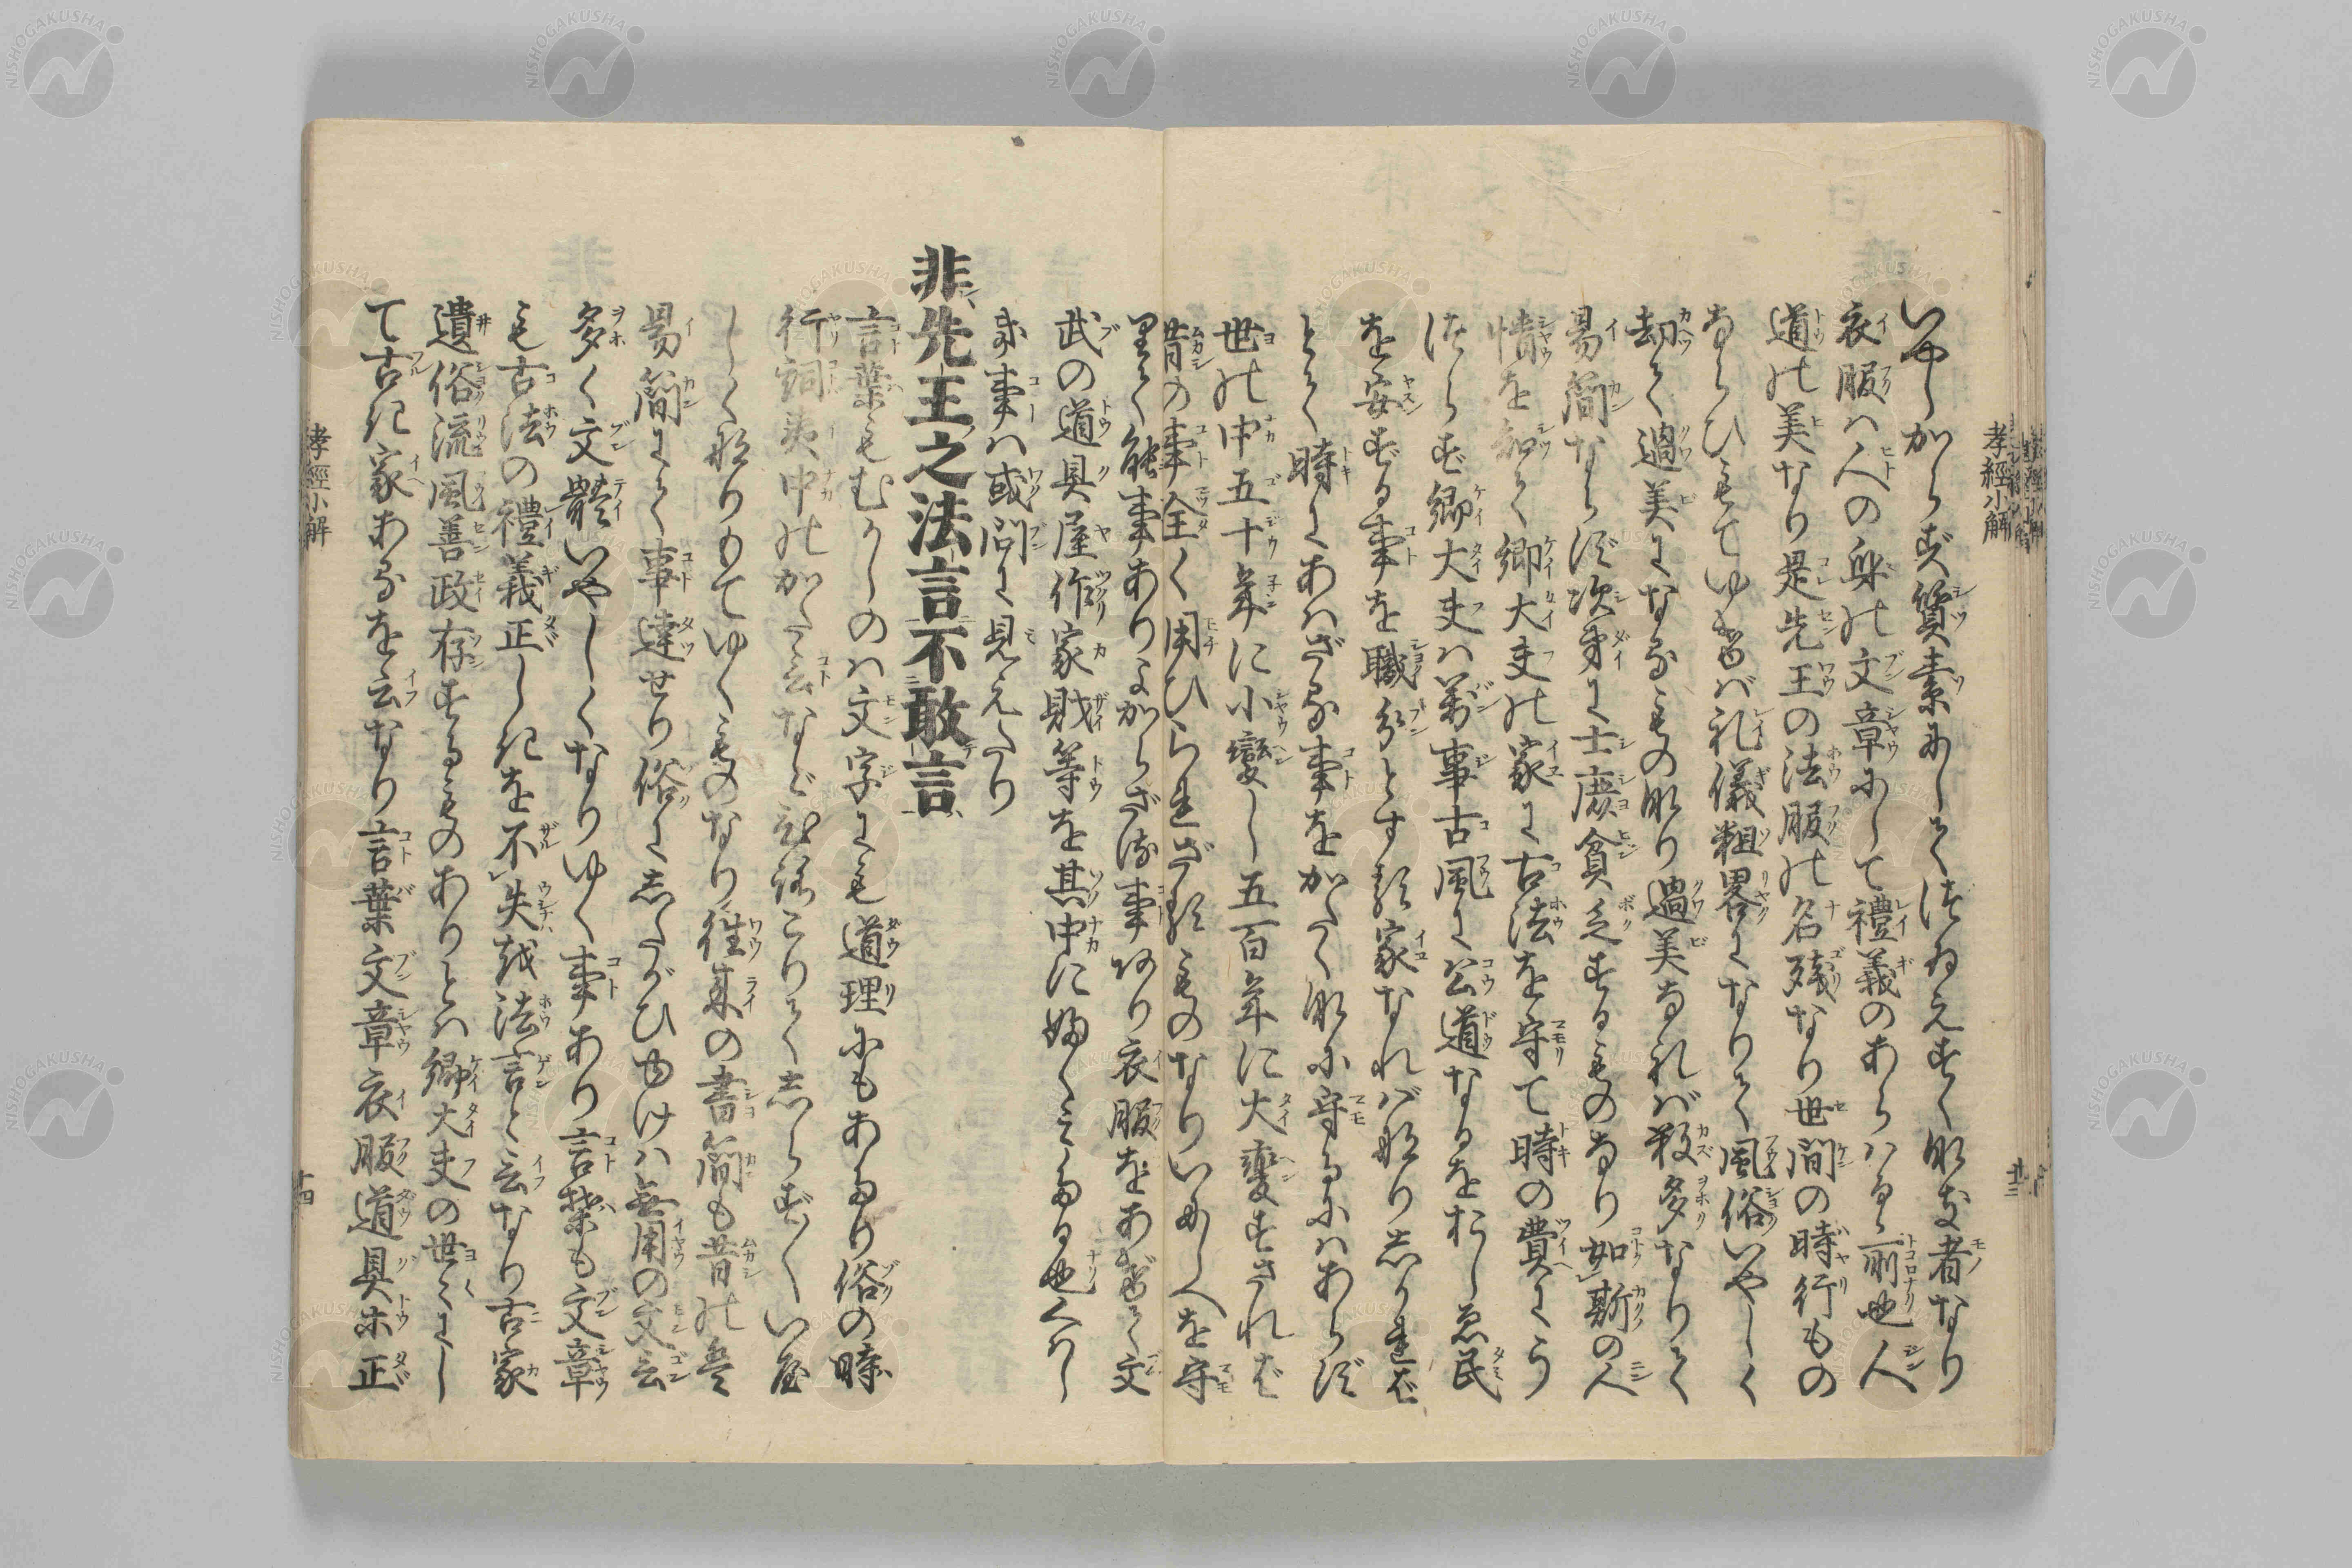 孝經小解
いやしからず質素にしてつゐえすくなき者なり
衣服は人の身の文章にして禮義のあらはるゝ所也人
道の美なり是先王の法服の名残なり世間の時行もの
ならひもてゆけば礼儀粗畧になりて風俗いやしく
却て過美になるもの也過美なれば数多なりて
易簡ならず次第に士庶貧乏するものなり如斯の人
情を知て卿大夫の家に古法を守て時の費にう
つらず卿大夫は萬事古風に公道なるをよしゑ民
を安ずる事を職分とす家なればなりしかれば
とて時にあはざる事をかたく守るにはあらず
世の中五十年に小變し五百年に大變すされば
昔の事全く用ひられざるものなりいにしへを守
りて能事ありよからざる事あり衣服をあげて文
武の道具屋作家財等を其中にふくみたる也くはし
き事は或問に見えたり
非先王之法言不敢言
言葉もむかしのは文字にも道理にもあたり俗の時
行詞夷中のかた言など
しくなりもてゆくものなり往来の書簡も昔のは
易簡にて事達せり俗にしたがひゆけは無用の文言
多く文體いやしくなりゆく事あり言葉も文章
も古法の禮義正しきを不失を法言と云なり古家
遺俗流風善政存するものありとは卿大夫の世々にし
て古き家あるを云なり言葉文章衣服道具ホ正
孝經小解
十四